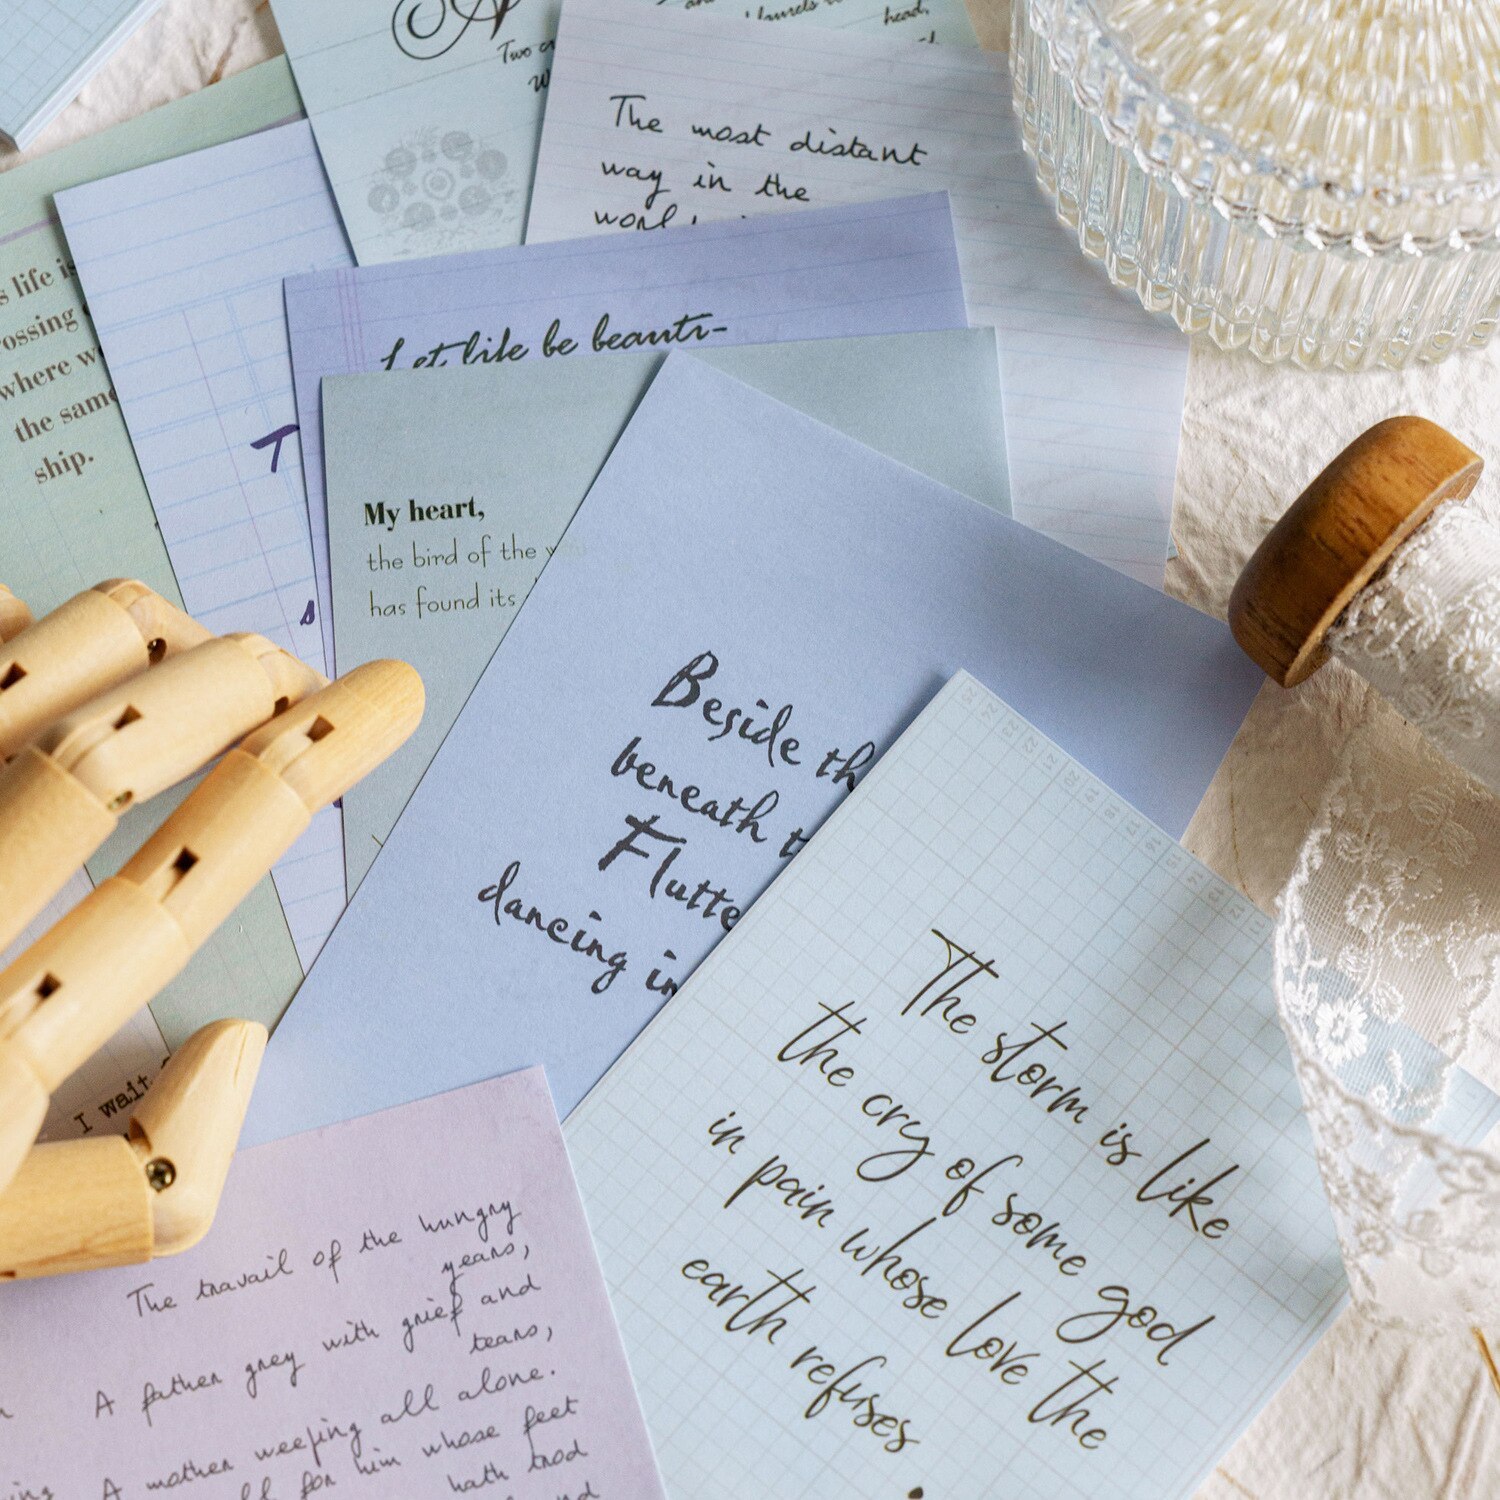 Two
head,
The most distant
way in the
s life is
ossing
where
the same
ship.
Let life be beauti-
T
s
My heart,
the bird of the
has found its
Beside
beneath
Flutte
dancing in
The storm is like
the cry of some god
in pain whose love the
earth refuses
.
I wait
The travail of the hungry
years,
A father grey with grief and
tears,
A mother weeping all alone.
for him whose feet
hath trod